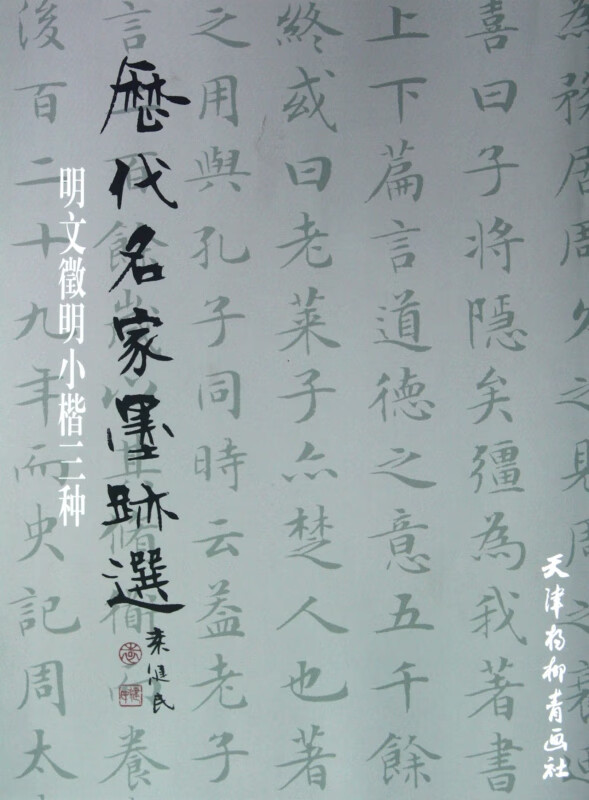 歷代名家墨跡選
明文徵明小楷二种
天津杨柳青画社
為務居周久之見周之衰迺
喜曰子將隱矣彊為我著書
上下篇言道德之意五千餘
終或曰老萊子亦楚人也著
之用與孔子同時云葢老子
言百餘歲以其脩衜而養
後百二十九年而史記周太